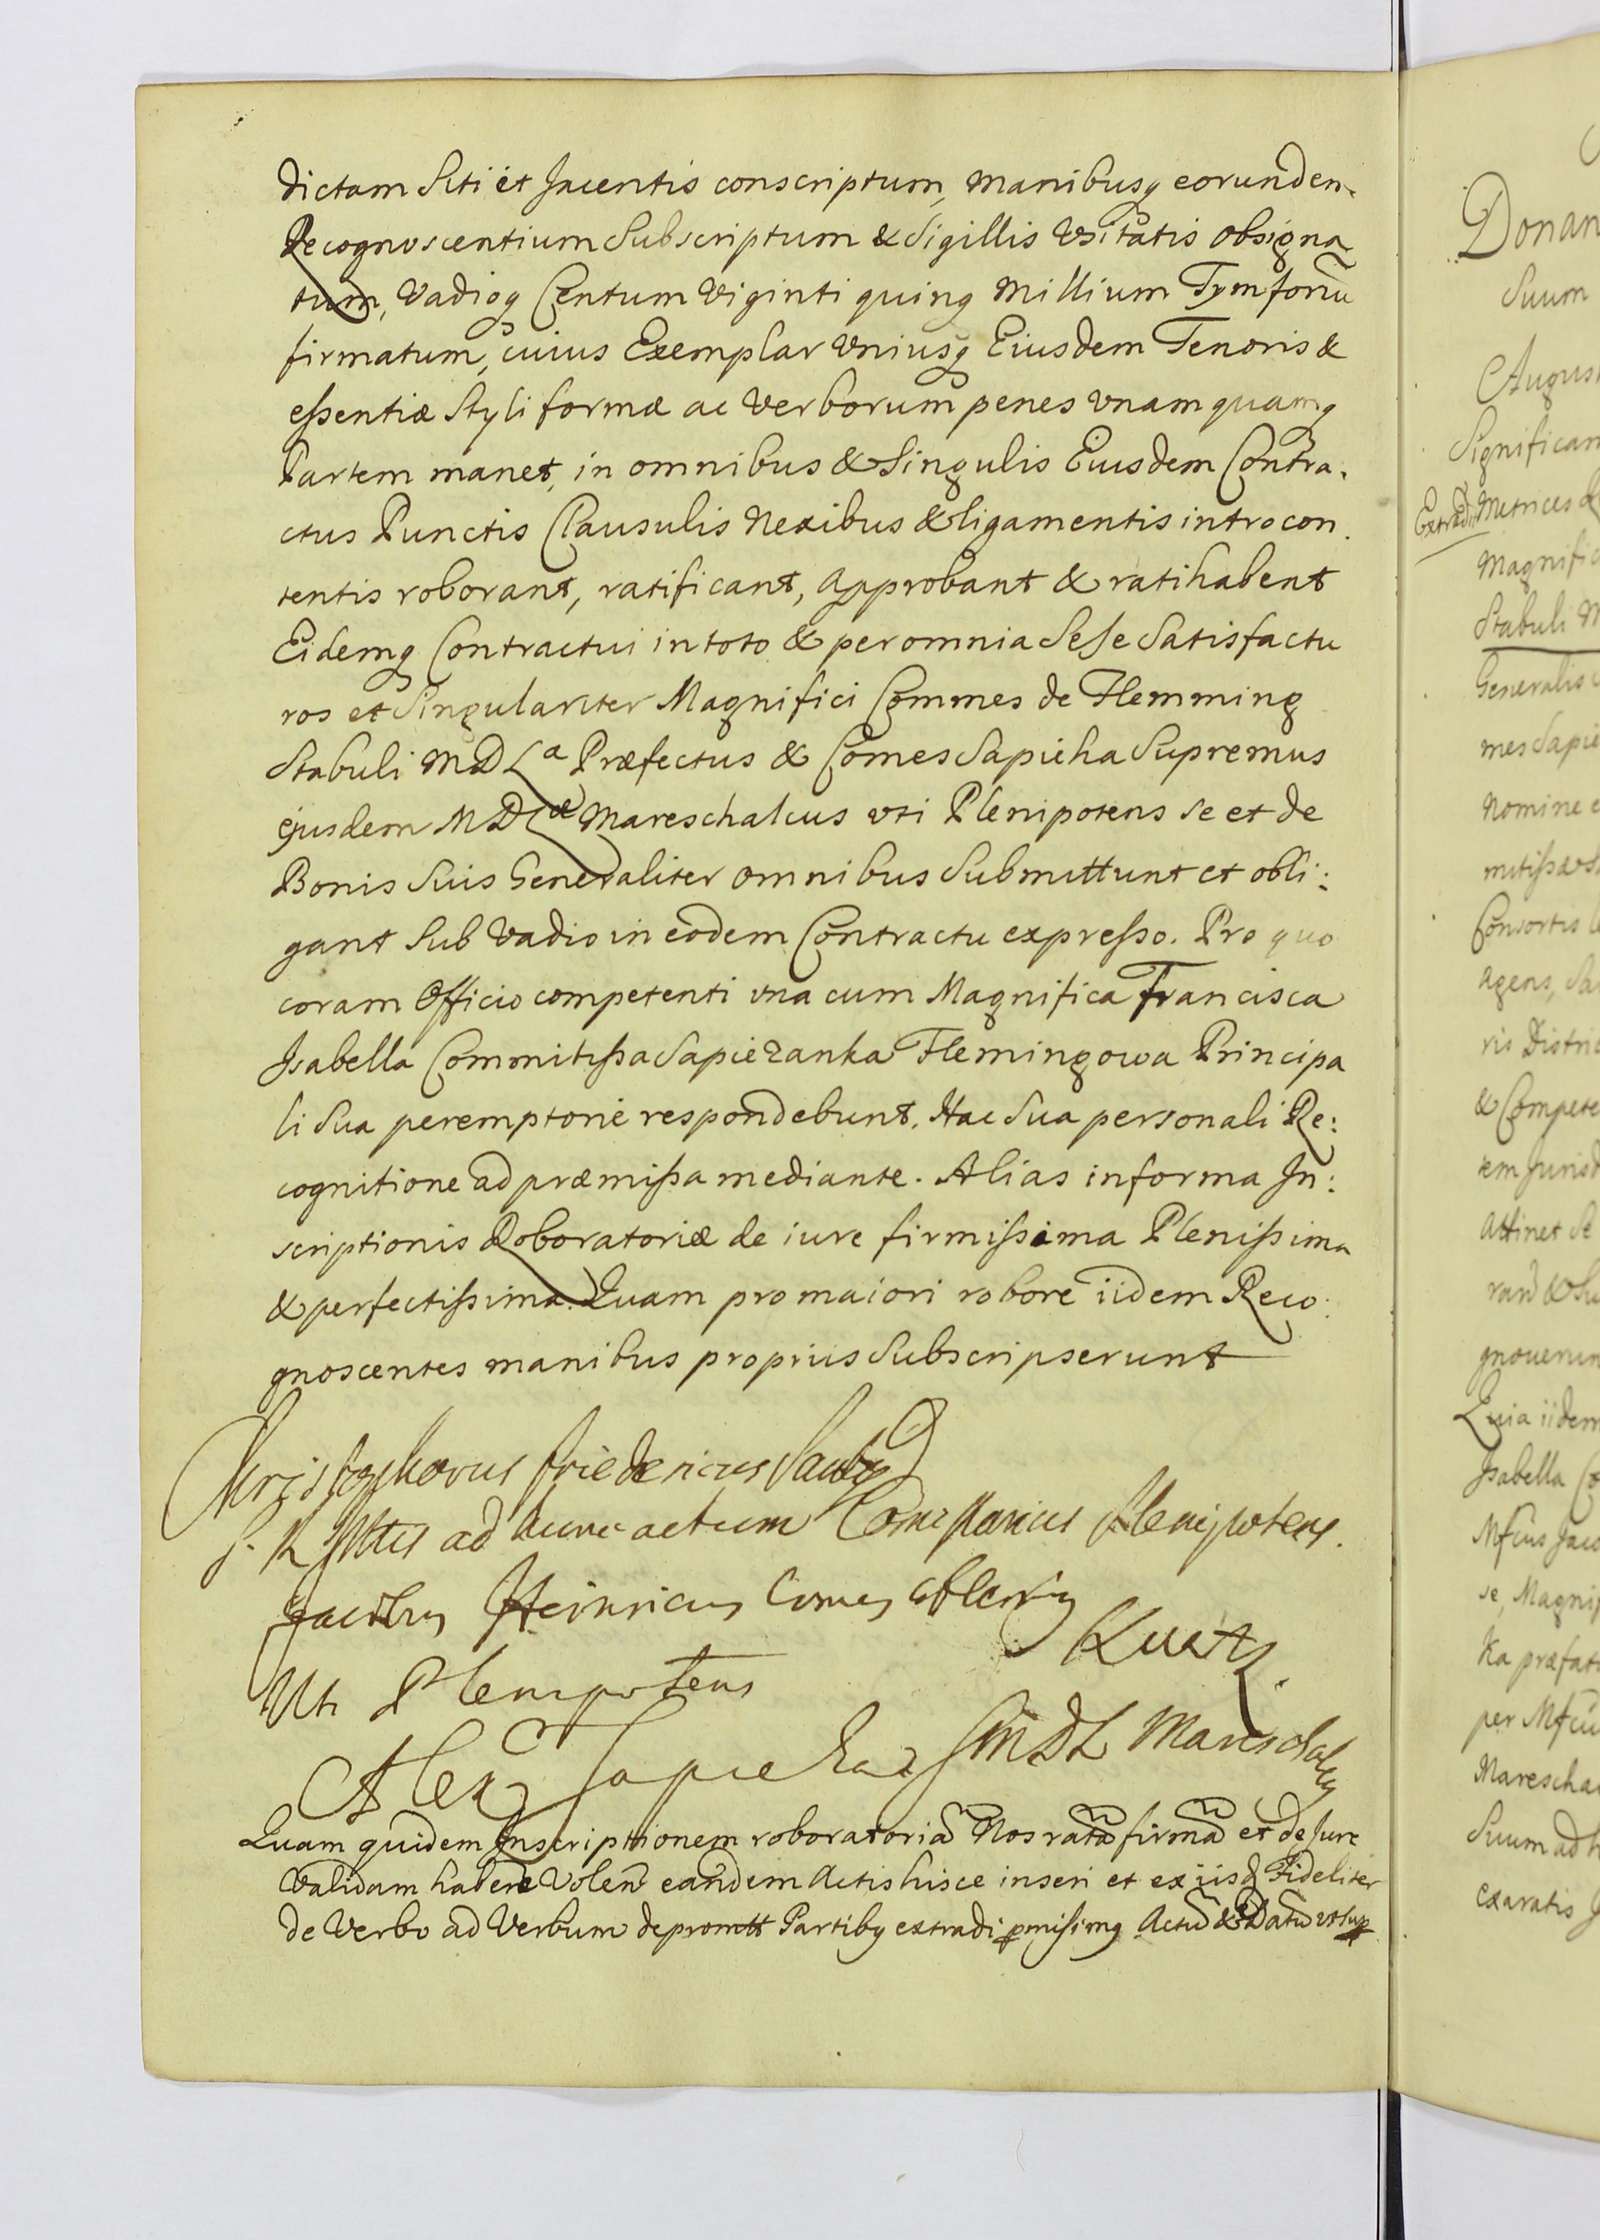 dictam Siti et Jacentis conscriptum, manibusq eorunden.
Recognoscentium Subscriptum & Sigillis Vsitatis obsigna
tum, Vadioq Centum Viginti quinq Millium Tymforū
firmatum, cuius Exemplar vniusq Eiusdem Tenoris &
eſsentiæ Styli formæ ac Verborum penes vnam quamq
Partem manet, in omnibus & Singulis Eiusdem Contra.
ctus Punctis Clausulis Nexibus & ligamentis intro con.
tentis roborant, ratificant, approbant & ratihabent
Eidemq Contractui in toto & per omnia Sese Satisfactu
ros et Singulariter Magnifici Commes de Flemming
Stabuli MDLa Præfectus & Comes Sapieha Supremus
ejusdem MDLæ Mareschalcus vti Plenipotens se et de
Bonis Suis Generaliter omnibus Submittunt et obli:
gant Sub Vadio in eodem Contractu expreſso. Pro quo
coram Officio competenti vna cum Magnifica Francisca
Isabella Commitiſsa Sapiezanka Flemingowa Principa
li Sua peremptorie respondebunt. Hac Sua personali Re:
cognitione ad præmiſsa mediante. Alias in forma In:
scriptionis Roboratoriæ de iure firmiſsima Pleniſsima
& perfectiſsima. Quam pro maiori robore iidem Reco:
gnoscentes manibus propriis Subscripserunt
Christophorus Friedericus
ad hunc actum Plenipotens.
Jacobus Heinricus Comes Flemming
Uti Plenipotens
Alex Sapieha MDL Mareschalcus
Quam quidem Inscriptionem roboratoriā Nos ratā firmā et de Jure
Validam habere Volen eandem Actis hisce inseri et ex iisq Fideliter
de Verbo ad Verbum depromtt Partibq extradi pmisimq Actū & Datū vt sup
Donan
Suum
August
Significam
Extradit
Metrices
Magnific
Stabuli M
Generalis
mes Sapie
Nomine
mitiſsæ
Consortis
agens, Sa
ris Distri
& Compete
tem Jurisd
attinet Se
gnouerun
Quia iidem
Isabella Co
Mfcus Jaco
se, Magnif
ka præfat
per Mfcu
Marescha
Suum ad
exaratis